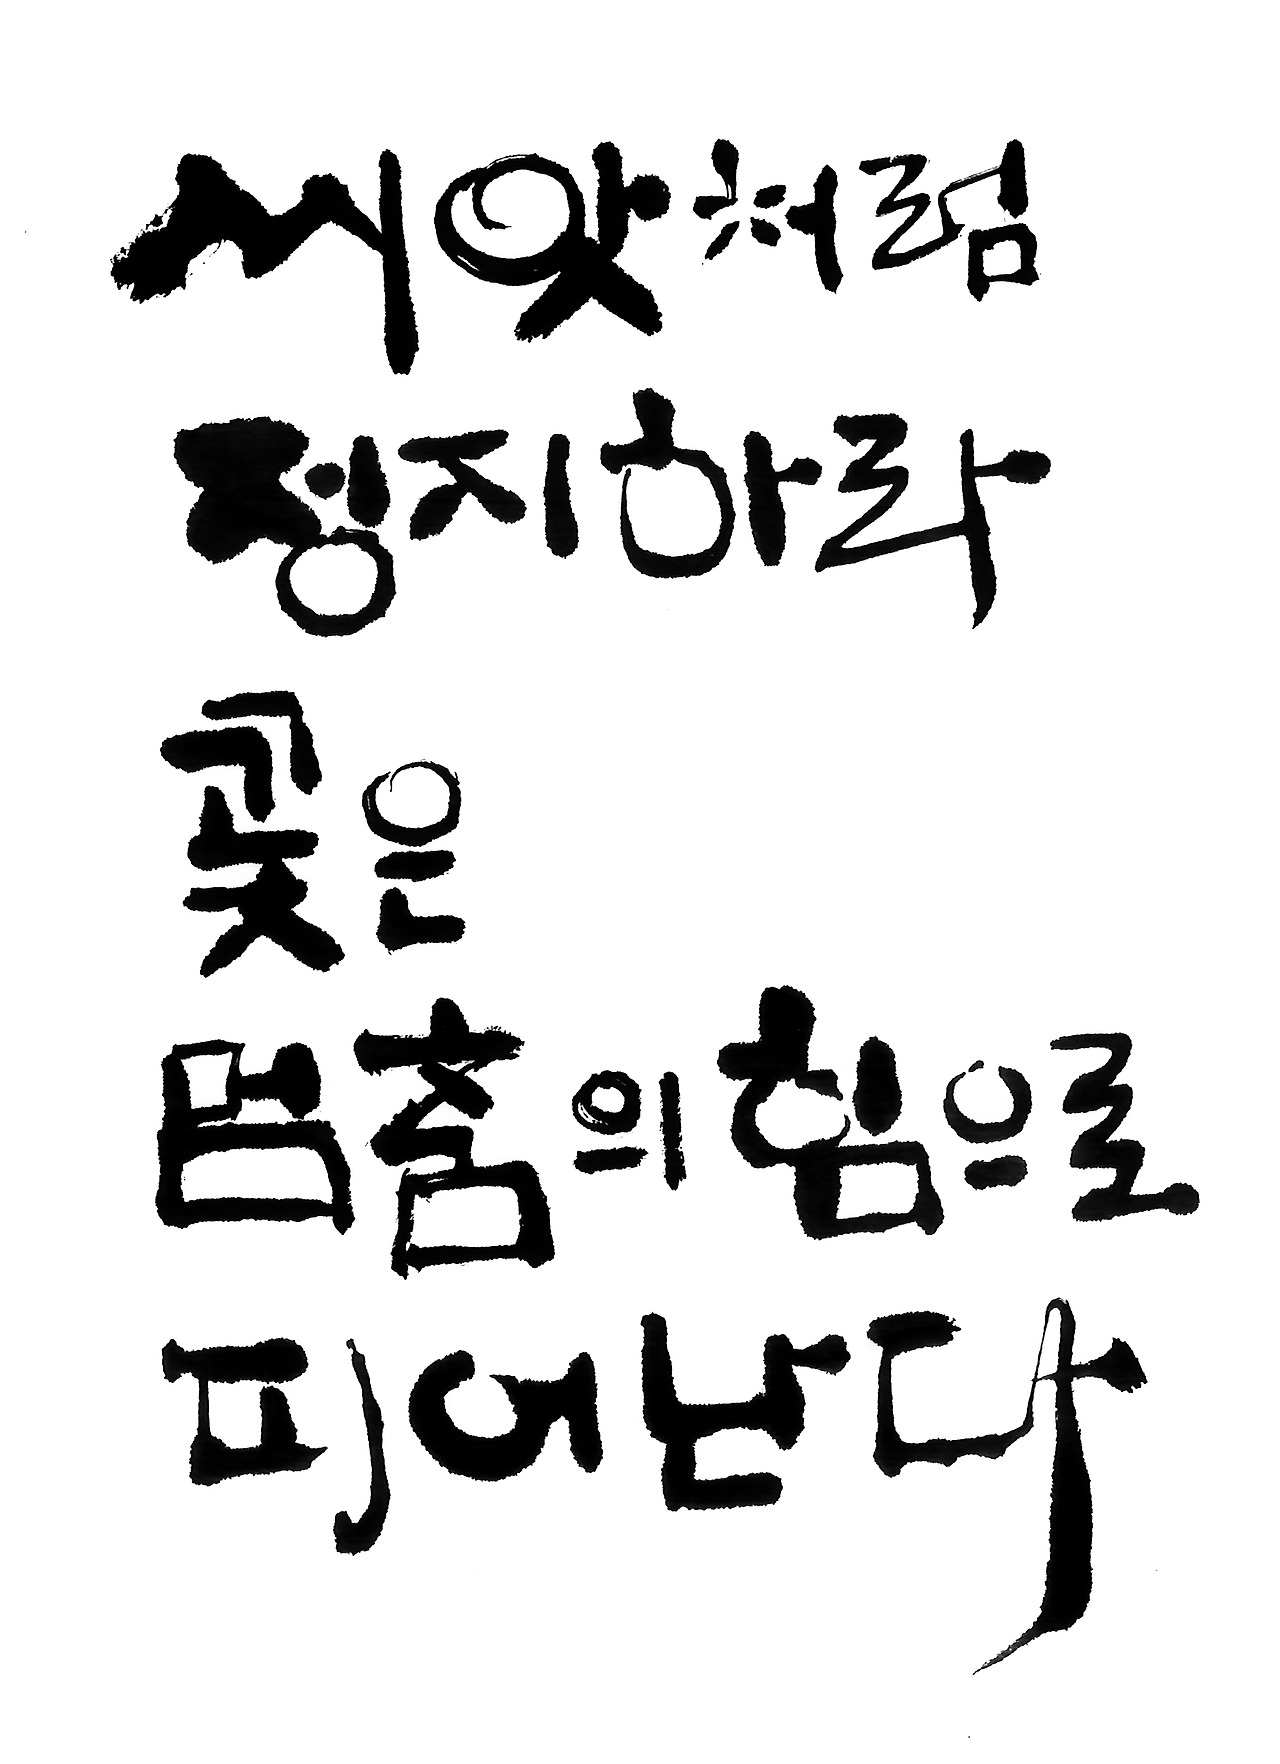 씨앗처럼
정지하라
꽃은
멈춤의 힘으로
피어난다